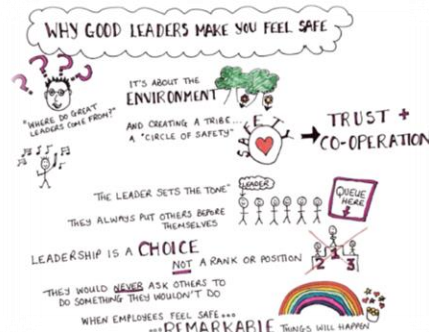 WHY GOOD LEADERS MAKE YOU FEEL SAFE
? ? ? ?
"WHERE DO GREAT
LEADERS COME FROM?"
IT'S ABOUT THE
ENVIRONMENT
AND CREATING A TRIBE...
A "CIRCLE OF SAFETY"
SAFETY
TRUST +
CO-OPERATION
"THE LEADER SETS THE TONE"
LEADER
QUEUE
HERE
THEY ALWAYS PUT OTHERS BEFORE
THEMSELVES
LEADERSHIP IS A CHOICE
NOT A RANK OR POSITION
2 1 3
THEY WOULD NEVER ASK OTHERS TO
DO SOMETHING THEY WOULDN'T DO
WHEN EMPLOYEES FEEL SAFE...
...REMARKABLE THINGS WILL HAPPEN